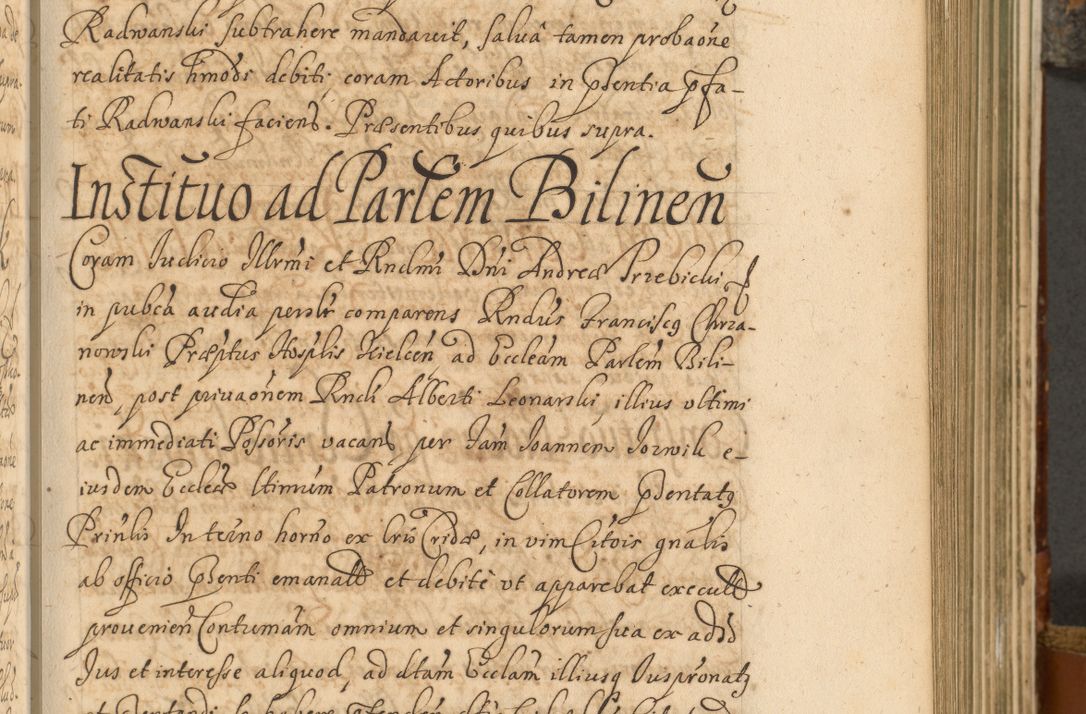 Radwanski subtrahere mandavit, salvâ tamen probaõne
realitatis hmõdi debiti coram Actoribus in pſentia pfa-
ti Radwanski faciens. Præsentibus quibus supra.
Instituo ad Parlem Bilinen̄
Coram Iudicio Illrmi et Rndmi Dni Andreæ Trzebicki
in pubca audia persłr comparens Rndus Franciscq Chrza-
nowski Præptus Hosplis Kielcen̄ ad Eccleam Parlem Bili-
nen̄, post privaõnem Rndi Alberti Leonarski, illius ultimi
ac immediati Possoris vacan̄ per Iam Ioannem Iozwik e-
iusdem Eccleæ ltimum Patronum et Collatorem pdentatq
Prin̄lis In term̄o horno ex lris Cridæ, in vim Citõis gnalis
ab officio pſenti emanatt et debitè ut apparebat executt
provenien̄ Contumam omnium et singulorum sua ex adſd
Ius et interesse aliquod, ad dtam Ecclam illiusq Iuspronatq